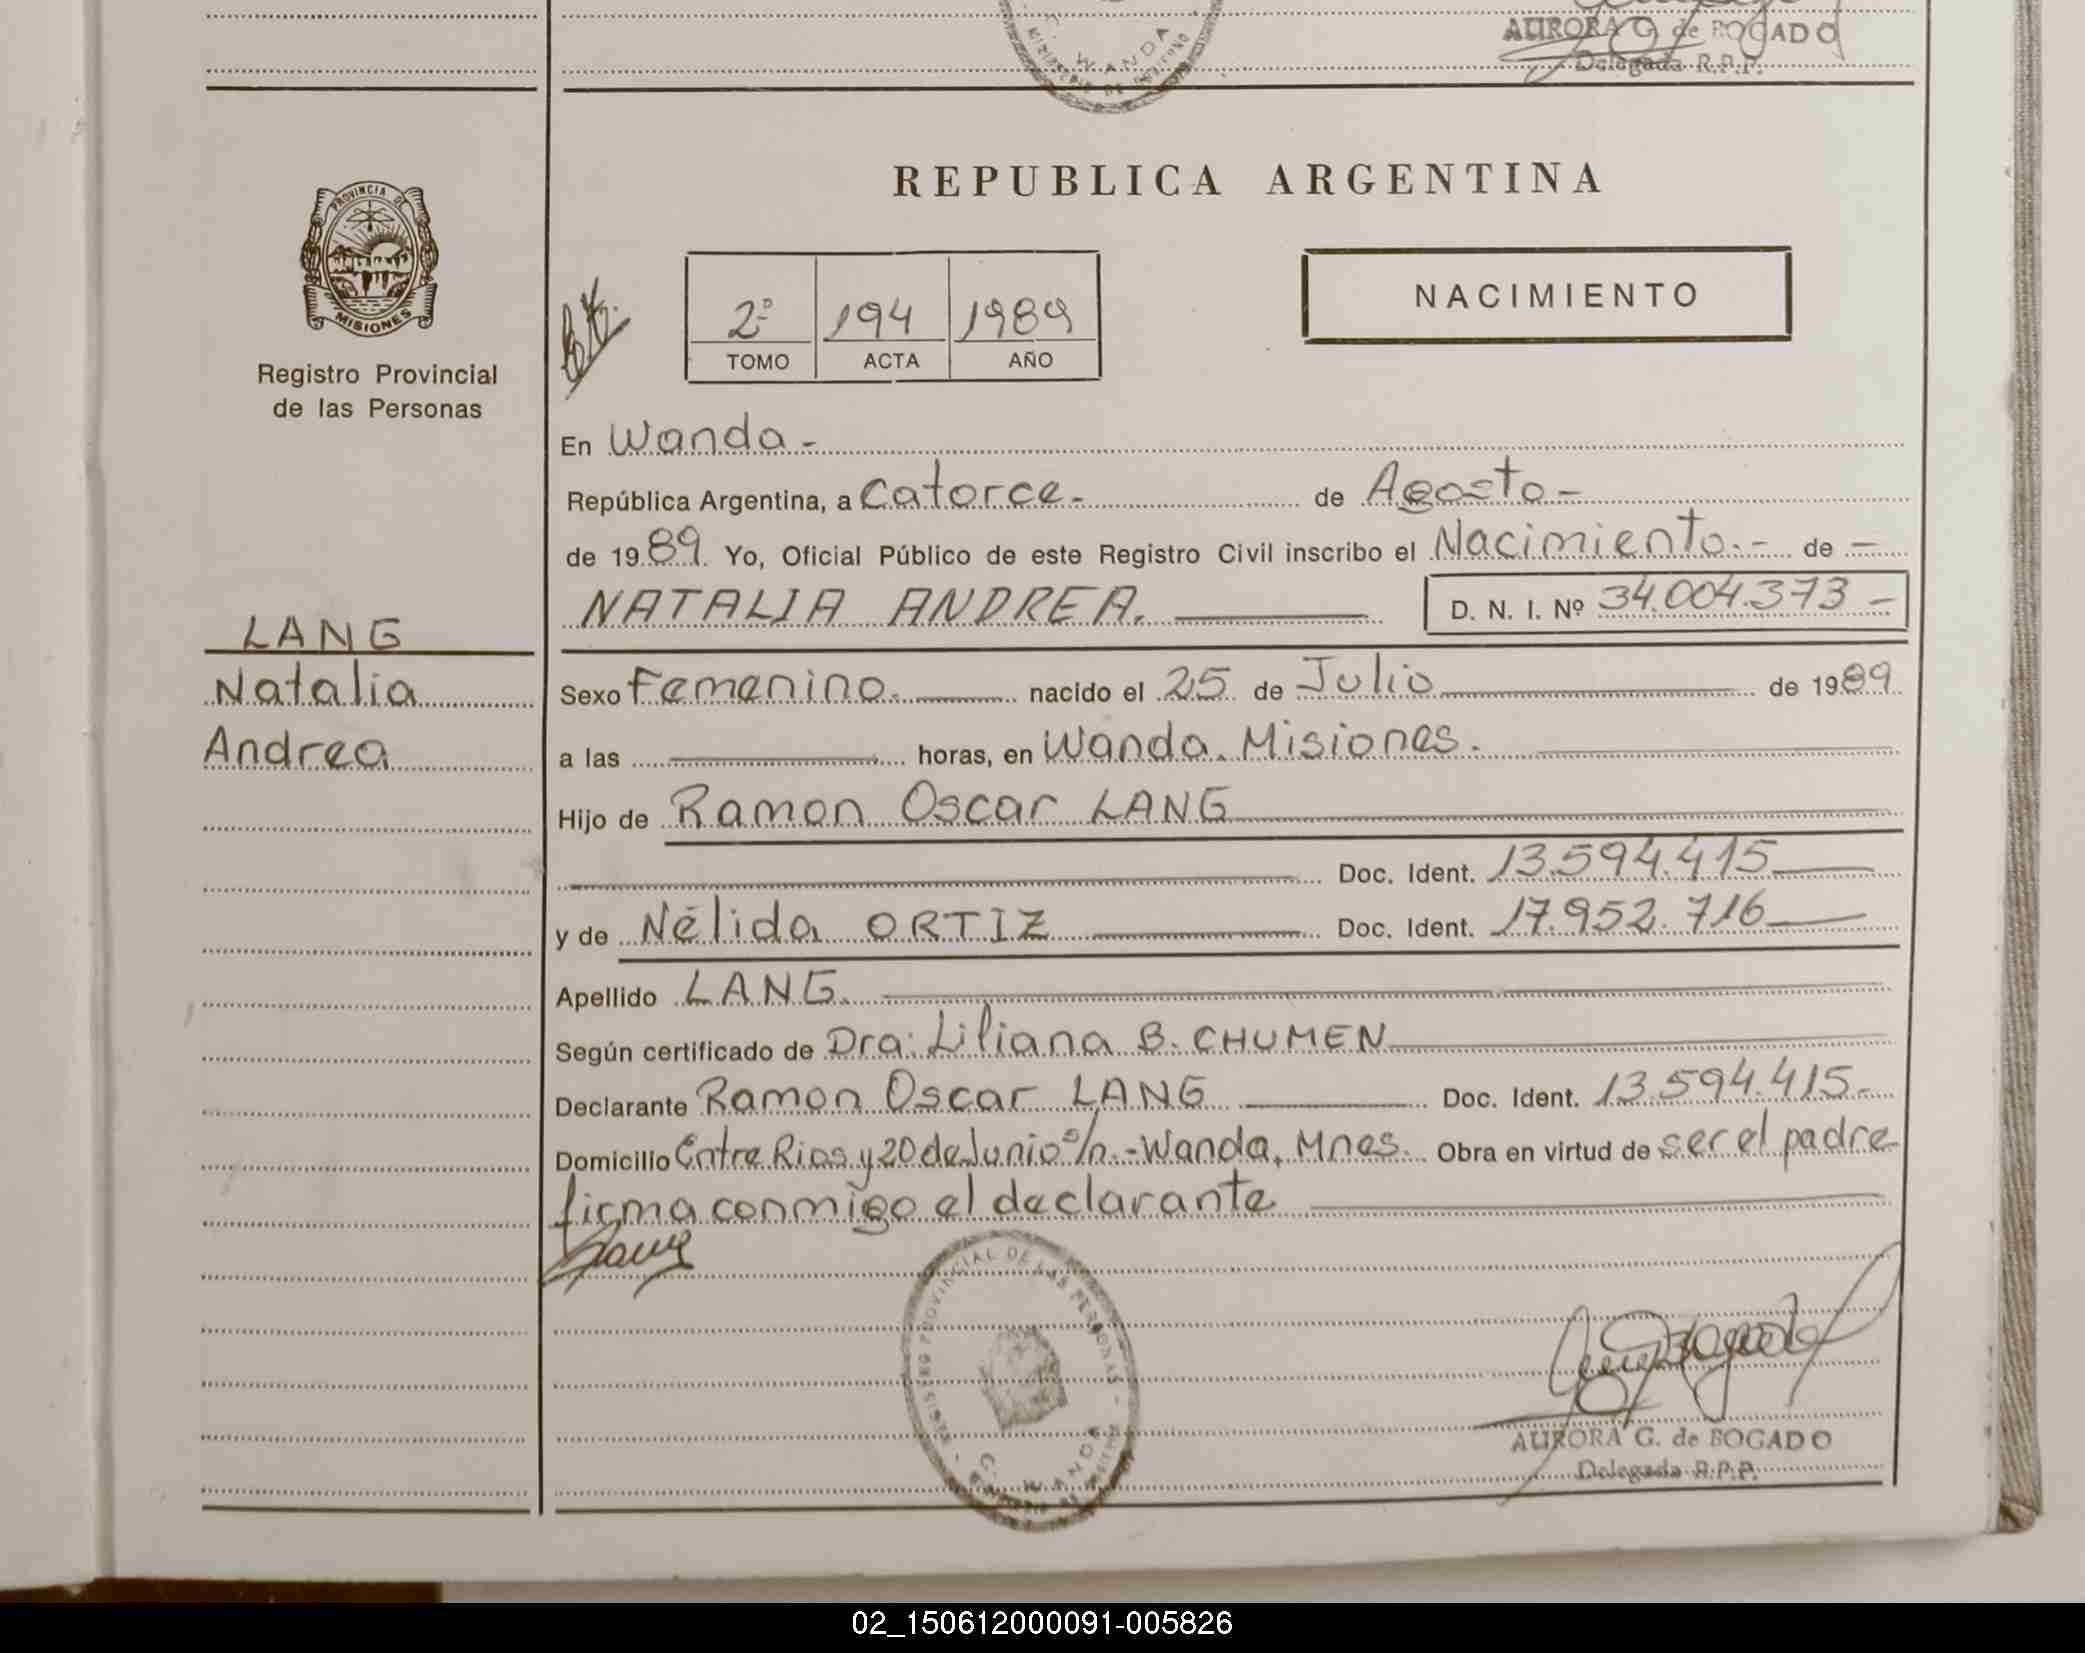 AURORA G. de BOGADO
Delegada R.P.P.
WANDA
REPUBLICA ARGENTINA
PROVINCIA DE
MISIONES
Registro Provincial
de las Personas
2º 194 1989
TOMO ACTA AÑO
NACIMIENTO
En Wanda -
República Argentina, a Catorce - de Agosto -
de 1989 Yo, Oficial Público de este Registro Civil inscribo el Nacimiento. - de -
NATALIA ANDREA. D. N. I. Nº 34.004.373 -
LANG
Natalia
Andrea
Sexo Femenino. nacido el 25 de Julio de 1989
a las horas, en Wanda. Misiones.
Hijo de Ramon Oscar LANG
Doc. Ident. 13.594.415
y de Nélida ORTIZ Doc. Ident. 17.952.716
Apellido LANG.
Según certificado de Dra: Liliana B. CHUMEN
Declarante Ramon Oscar LANG Doc. Ident. 13.594.415-
Domicilio Entre Rios y 20 de Junio s/n.-Wanda, Mnes. Obra en virtud de ser el padre
firma conmigo el declarante
REG PROVINCIAL DE LAS PERSONAS
WANDA
AURORA G. de BOGADO
Delegada R.P.P.
02_150612000091-005826